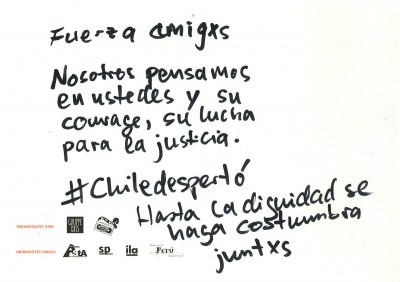 Fuerza amigxs
Nosotros pensamos
en ustedes y su
courage, su lucha
para la justicia.
#Chiledespertó
Hasta la dignidad se
haga costumbra
juntxs
VERANSTALTET VON:
UNTERSTÜTZT DURCH:
AStA
sp
ila
Perú